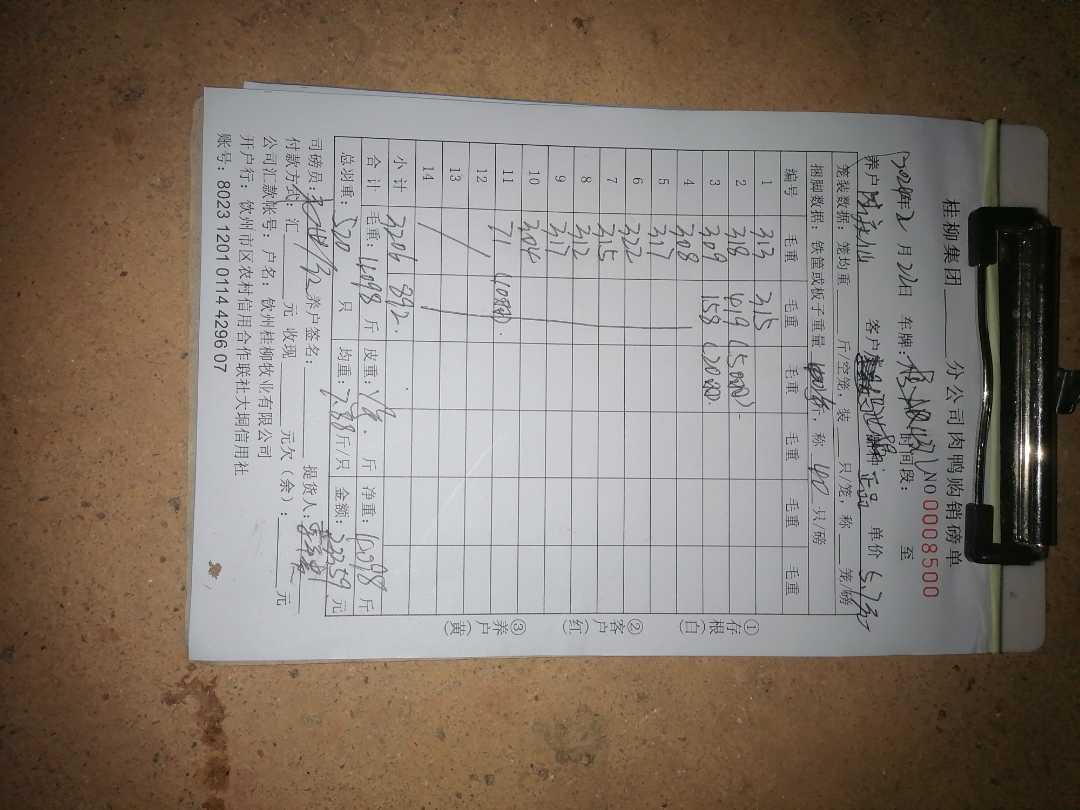 桂柳集团 分公司肉鸭购销磅单
NO 0008500
2024年2月22日 车牌: 时间段: 至
养户 客户 品种 正品 单价 5.7元
笼装数据:笼均重 斤/空笼,装 只/笼,称 笼/磅
捆脚数据:铁筐或板子重量 斤,称 40 只/磅
编号 毛重 毛重 毛重 毛重 毛重 毛重
1 313 315
2 318 419 (500只)
3 309 158 (20只)
4 308
5 317
6 322
7 315
8 312
9 317
10 304
11 71 (10只)
12
13
14
小计 3206 892
合计 毛重:4098 斤 皮重: 斤 净重: 斤
总羽重:520 只 均重:7.88 斤/只 金额:23359 元
司磅员: 养户签名: 提货人:
付款方式:汇 元 收现 元欠(余): 元
公司汇款帐号:户名:钦州桂柳牧业有限公司
开户行:钦州市区农村信用合作联社大垌信用社
账号:8023 1201 0114 4296 07
①存根(白) ②客户(红) ③养户(黄)